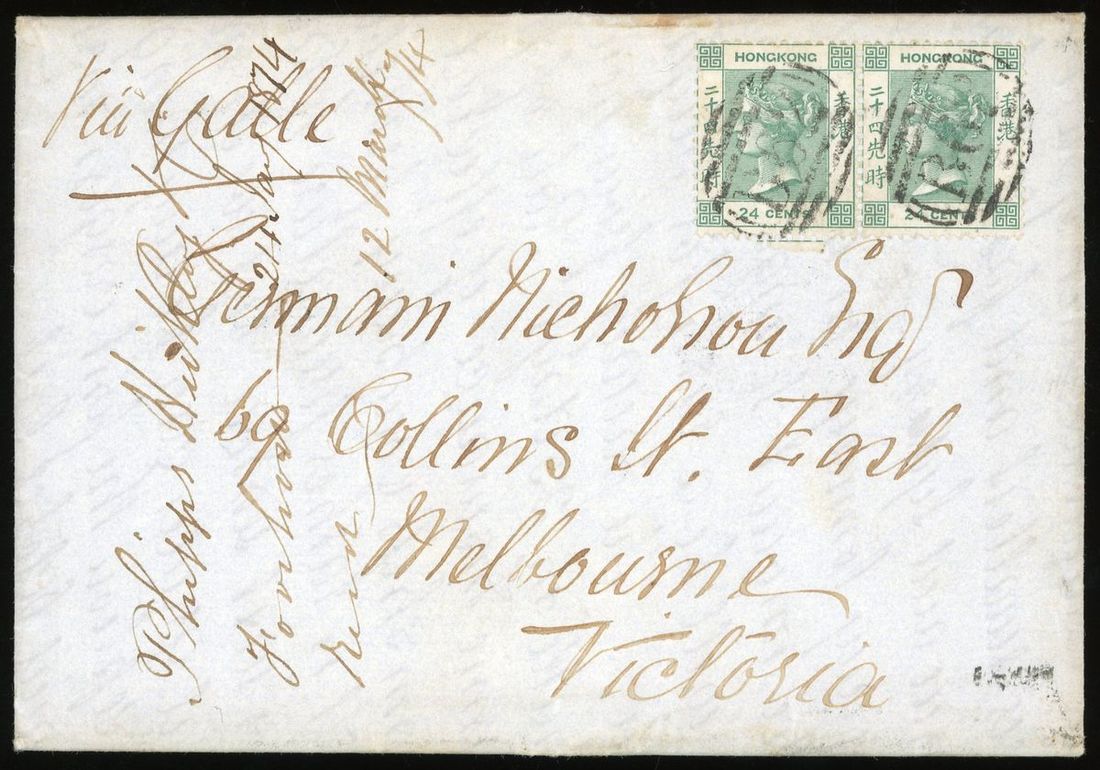 Via Galle
HONGKONG
二十四先時
香港
24 CENTS
HONGKONG
二十四先時
香港
24 CENTS
Nicholson Esq
69 Collins St. East
Melbourne
Victoria
Phipps
Foochow 24 Jany 1874
recd 12 March /74